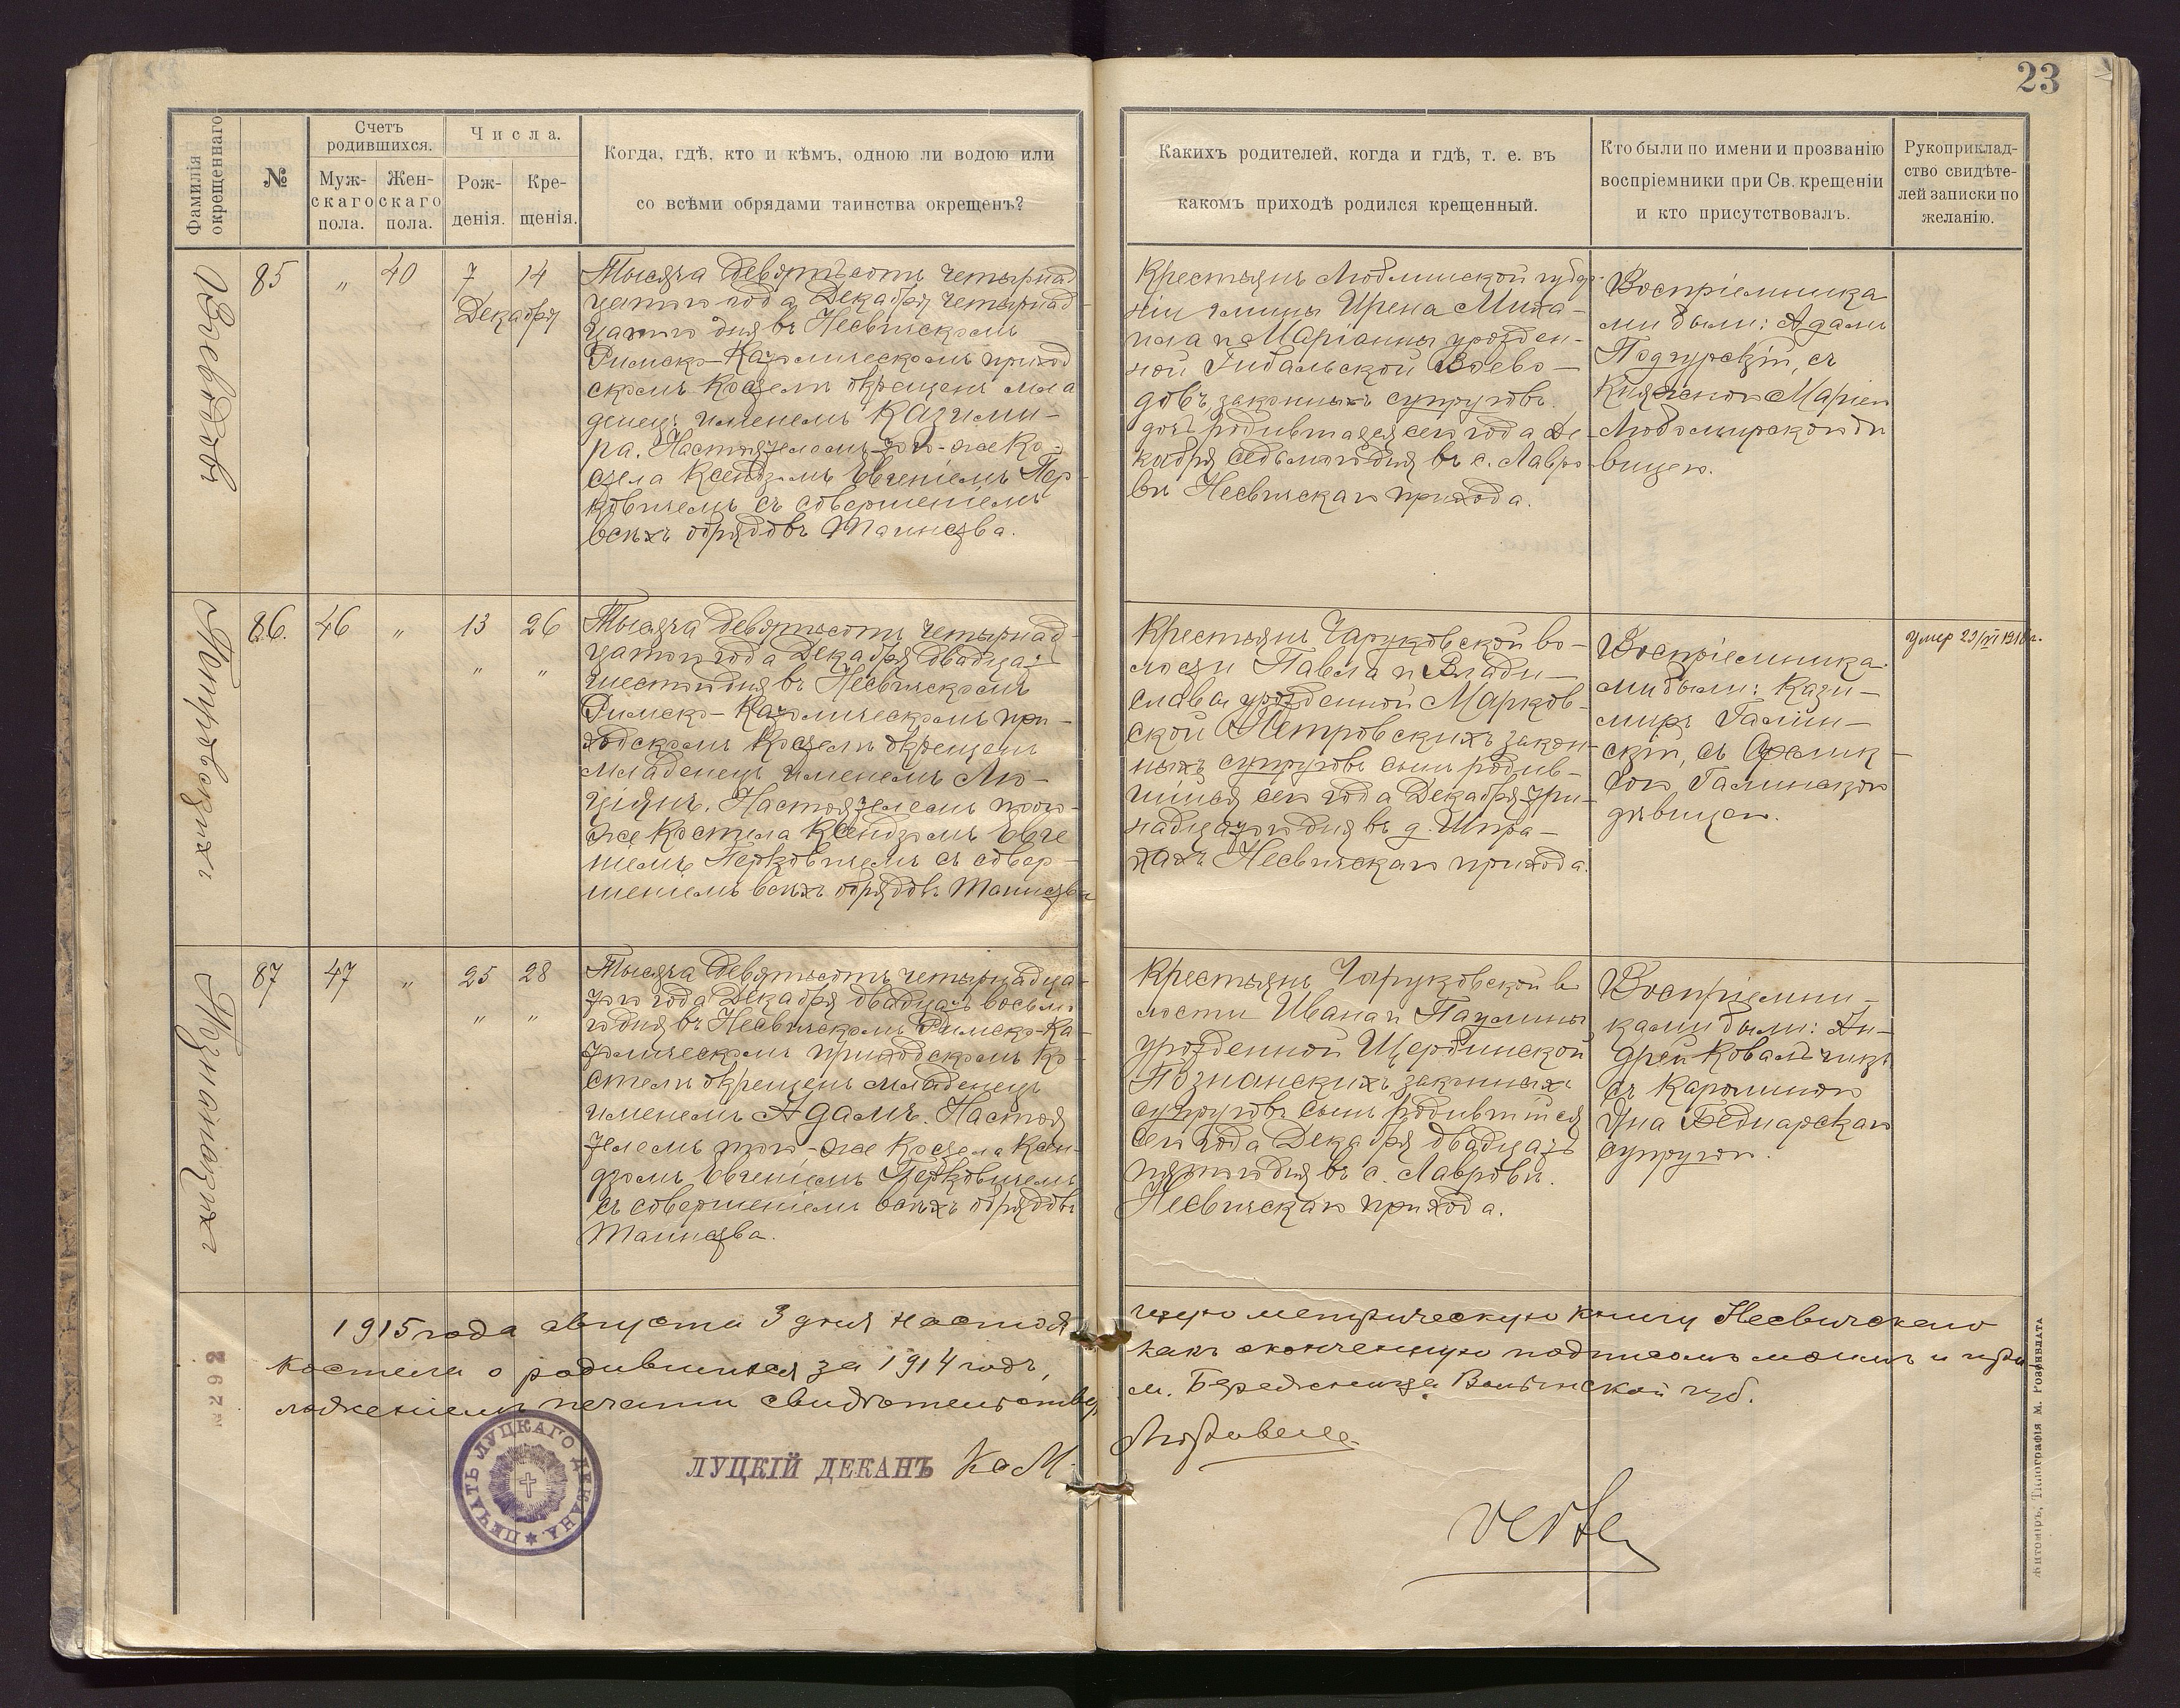 23
Фамилія окрещеннаго
№
Счетъ родившихся.
Мужскаго пола.
Женскаго пола.
Числа.
Рожденія.
Крещенія.
Когда, гдѣ, кто и кѣмъ, одною ли водою или
со всѣми обрядами таинства окрещенъ?
Какихъ родителей, когда и гдѣ, т. е. въ
какомъ приходѣ родился крещенный.
Кто были по имени и прозванію
воспріемники при Св. крещеніи
и кто присутствовалъ.
Рукоприклад-
ство свидѣте-
лей записки по
желанію.
85 " 40 7 14
Декабря
Тысяча девятьсотъ четырнад
цатого года Декабря четырнад-
цатого дня въ Несвичскомъ
Римско-Католическомъ приход
скомъ Костелѣ окрещенъ мла
денец именемъ Казими-
ра. Настоятелемъ того-же Ко-
стела Ксендзомъ Евгеніемъ Пер
ковичемъ съ совершеніемъ
всѣхъ обрядовъ Таинства.
Крестьянъ Люблинской губер-
ніи гмины Ирена Миха-
ила и Маріанны урожден-
ной Гибальской Воево-
довъ законныхъ супруговъ
дочь родившаяся сего года Де-
кабря седьмого дня въ с. Лавро
вѣ Несвичскаго прихода.
Воспріемника
ми были: Адамъ
Подгурскій, съ
Княжною Маріею
Любомирскою дѣ
вицею.
Петровскихъ
86. 46 " 13 26
" "
Тысяча девятьсотъ четырнад-
цатого года Декабря двадцать
шестого дня въ Несвичскомъ
Римско-Католическомъ при-
ходскомъ Костелѣ окрещенъ
младенецъ именемъ Лю-
ціянъ. Настоятелемъ того-
же Костела Ксендзомъ Евге
ніемъ Перковичемъ съ совер-
шеніемъ всѣхъ обрядовъ Таинства
Крестьянъ Чаруковской во-
лости Павла и Влади-
славы урожденной Марков-
ской Петровскихъ закон-
ныхъ супруговъ сынъ родив-
шійся сего года Декабря три-
надцатого дня въ д.
Несвичскаго прихода.
Воспріемника
ми были: Кази-
миръ Галин-
скій, съ
Галинскою
дѣвицею.
Умер
Познанскихъ
87 47 " 25 28
" "
Тысяча девятьсотъ четырнадца-
того года Декабря двадцать восьмо
го дня въ Несвичскомъ Римско-Ка-
толическомъ приходскомъ Ко-
стелѣ окрещенъ младенецъ
именемъ Адамъ. Настоя
телемъ того-же Костела Ксен-
дзомъ Евгеніемъ Перковичемъ
съ совершеніемъ всѣхъ обрядовъ
Таинства.
Крестьянъ Чаруковской во
лости Ивана и Паулины
урожденной Щербинской
Познанскихъ законныхъ
супруговъ сынъ родившійся
сего года Декабря двадцать
пятого дня въ с. Лавровѣ.
Несвичскаго прихода.
Воспріемни-
ками были: Ан-
дрей Ковальчикъ
съ Каролиною
Яна Беднарскаго
супругою.
1915 года августа 3 дня настоя
щую метрическую книгу Несвичскаго
костела о родившихся за 1914 годъ,
какъ оконченную подписомъ моимъ и при
ложеніемъ печати свидѣтельствую
м. Бережница Волынской губ.
ЛУЦКІЙ ДЕКАНЪ
ПЕЧАТЬ ЛУЦКАГО ДЕКАНА
verte
№ 292
Житоміръ, Типографія М. Розенблата